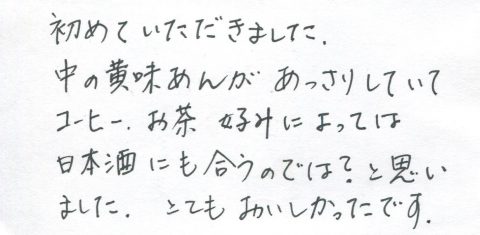 初めていただきました.
中の黄味あんがあっさりしていて
コーヒー.お茶 好みによっては
日本酒にも合うのでは?と思い
ました. とてもおいしかったです.